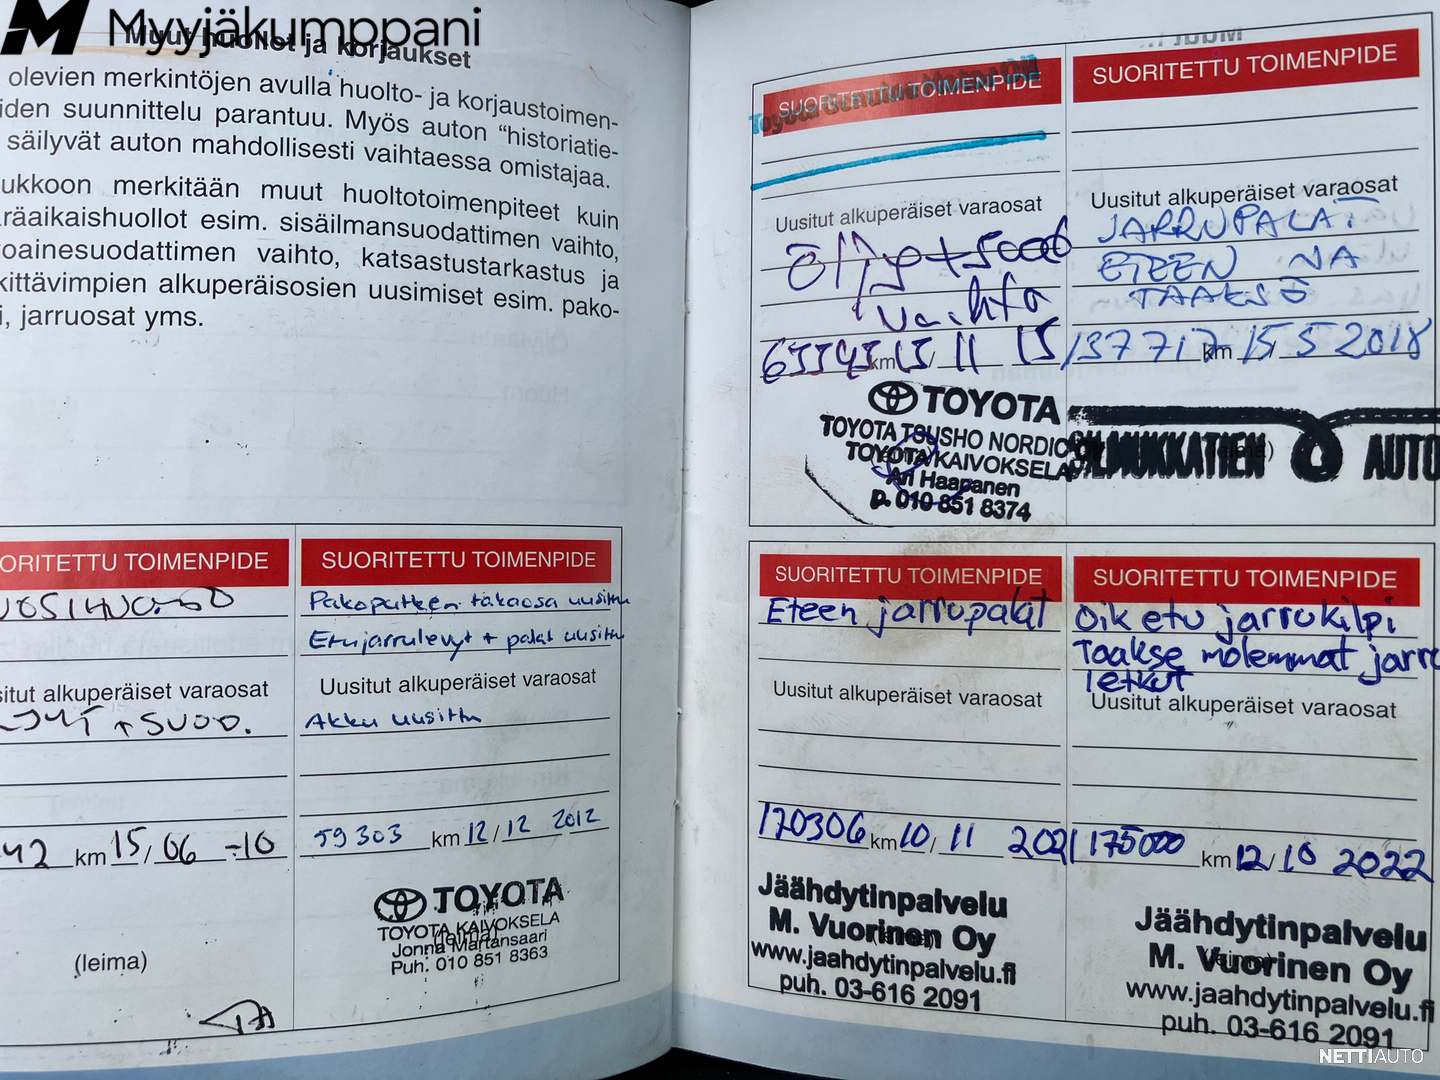 Myyjäkumppani
Muut huollot ja korjaukset
olevien merkintöjen avulla huolto- ja korjaustoimen-
iden suunnittelu parantuu. Myös auton “historiatie-
säilyvät auton mahdollisesti vaihtaessa omistajaa.
ukkoon merkitään muut huoltotoimenpiteet kuin
räaikaishuollot esim. sisäilmansuodattimen vaihto,
oainesuodattimen vaihto, katsastustarkastus ja
kittävimpien alkuperäisosien uusimiset esim. pako-
i, jarruosat yms.
ORITETTU TOIMENPIDE
situt alkuperäiset varaosat
SUOD.
42 km 15/06 -10
(leima)
SUORITETTU TOIMENPIDE
Pakoputken takaosa uusittu
Etujarrulevyt + palat uusittu
Uusitut alkuperäiset varaosat
Akku uusittu
59303 km 12/12 2012
(leima)
TOYOTA
TOYOTA KAIVOKSELA
Jonna Martansaari
Puh. 010 851 8363
SUORITETTU TOIMENPIDE
Uusitut alkuperäiset varaosat
öljy + suod
vaihto
km 15/11 15
TOYOTA
TOYOTA TSUSHO NORDIC OY
TOYOTA KAIVOKSELA
Ari Haapanen
p. 010 851 8374
SUORITETTU TOIMENPIDE
Uusitut alkuperäiset varaosat
JARRUPALAT
ETEEN JA
TAAKSE
137717 km 15/5 2018
(leima)
AUTO
SUORITETTU TOIMENPIDE
Eteen jarrupalat
Uusitut alkuperäiset varaosat
170306 km 10/11 2021
(leima)
Jäähdytinpalvelu
M. Vuorinen Oy
www.jaahdytinpalvelu.fi
puh. 03-616 2091
SUORITETTU TOIMENPIDE
Oik etu jarrukilpi
Taakse molemmat jarru
letkut
Uusitut alkuperäiset varaosat
175000 km 12/10 2022
(leima)
Jäähdytinpalvelu
M. Vuorinen Oy
www.jaahdytinpalvelu.fi
puh. 03-616 2091
NETTIAUTO